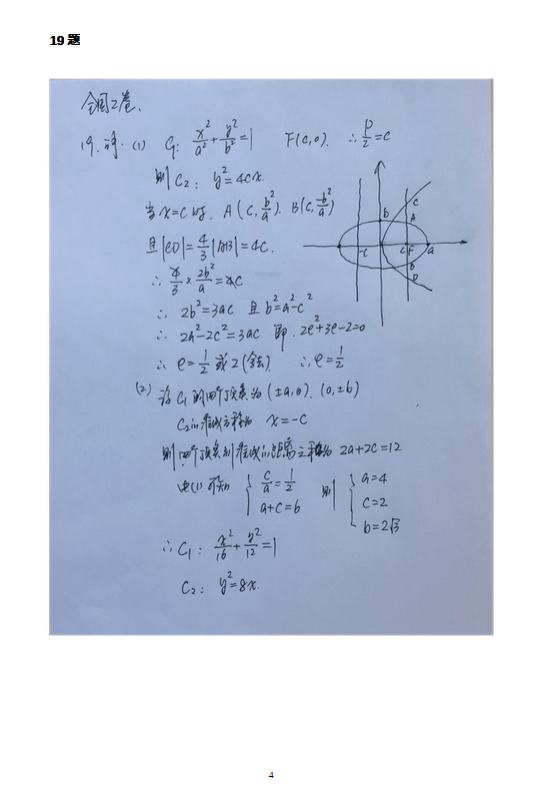 19题
全国2卷.
19. 解. (1) C₁: x²/a² + y²/b² = 1 F(c,0). ∴ p/2 = c
则 C₂: y²=4cx.
当 x=c 时, A(c, b²/a). B(c, -b²/a)
且 |CD| = 4/3 |AB| = 4c.
∴ 4/3 × 2b²/a = 4c
∴ 2b²=3ac 且 b²=a²-c²
∴ 2a²-2c²=3ac 即. 2e²+3e-2=0
∴ e=1/2 或 2 (舍去). ∴ e=1/2
(2) 设 C₁ 的四个顶点为 (±a,0). (0,±b)
C₂的准线方程为 x=-c
则四个顶点到准线的距离之和为 2a+2c=12
由(1)可知 { c/a = 1/2 a+c=6 则 { a=4 c=2 b=2√3
∴ C₁: x²/16 + y²/12 = 1
C₂: y²=8x.
b C A -c c F a B D
4